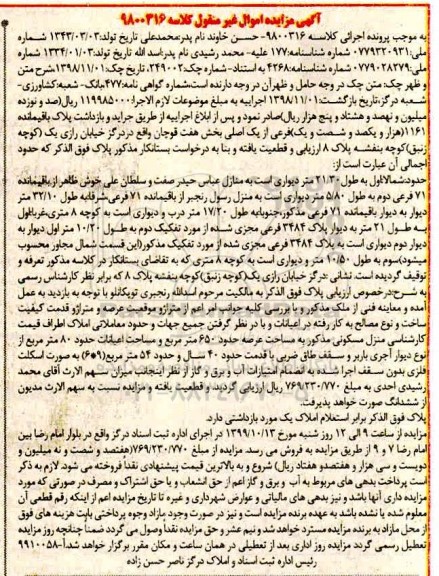 آگهی مزایده اموال غیر منقول کلاسه ۹۸۰۰۳۱۶
به موجب پرونده اجرائی کلاسه ۹۸۰۰۳۱۶- حسن خاوند نام پدر:محمدعلی تاریخ تولد:۱۳۴۳/۰۳/۰۳ شماره
ملی:۰۷۷۹۳۲۰۹۳۱ شماره شناسنامه:۱۷۷ علیه- محمد رشیدی نام پدر:اسد الله تاریخ تولد:۱۳۳۴/۰۱/۰۳ شماره
ملی:۰۷۹۰۲۸۲۷۹ شماره شناسنامه:۴۲۶۸ به استناد- شماره چک:۲۴۹۰۰۲، تاریخ چک:۱۳۹۸/۱۱/۰۱ شرح متن
و ظهر چک: متن چک در وجه حامل و ظهر آن در وجه دارنده است،شماره گواهی نامه:۴۷۷،بانک- شعبه:کشاورزی-
شعبه درگز،تاریخ بازگشت:۱۳۹۸/۱۱/۰۱ اجراییه به مبلغ موضوعات لازم الاجرا:۱۱۹۹۸۵۰۰۰ ریال(صد و نوزده
میلیون و نهصد و هشتاد و پنج هزار ریال)صادر نمود و پس از ابلاغ اجراییه از طریق جراید و بازداشت پلاک باقیمانده
۱۱۶۱(هزار و یکصد و شصت و یک)فرعی از یک اصلی بخش هفت قوچان واقع در درگز خیابان رازی یک (کوچه
زنبق)کوچه بنفشه پلاک ۸ ارزیابی و قطعیت یافته و بنا به درخواست بستانکار مذکور پلاک فوق الذکر که حدود
اجمالی آن عبارت است از:
حدود:شمالا:اول به طول ۲۱/۳۰ متر دیواری است به منازل عباس حیدر صفت و سلطان علی خوش ظاهر از باقیمانده
۷۱ فرعی دوم به طول ۵/۸۰ متر دیواری است به منزل رسول رنجبر از باقیمانده ۷۱ فرعی،شرقا:به طول ۳۲/۱۰ متر
دیوار به دیوار باقیمانده ۷۱ فرعی مذکور،جنوبا:به طول ۱۷/۲۰ متر درب و دیواری است به کوچه ۸ متری،غربا:اول
به طول ۲۱ متر به دیوار پلاک ۳۴۸۴ فرعی مجزی شده از مورد تفکیک دوم به طول ۱۰/۲۰ متر اول دیوار به
دیوار دوم دیواری است به پلاک ۳۴۸۴ فرعی مجزی شده از مورد تفکیک مذکور(این قسمت شمال مجاور محسوب
میشود)سوم به طول ۱۰/۵۰ متر و دیواری است به کوچه ۸ متری که به تقاضای بستانکار در کلاسه مذکور تعرفه و
توقیف گردیده است. نشانی :درگز خیابان رازی یک(کوچه زنبق)کوچه بنفشه پلاک ۸ که برابر نظر کارشناس رسمی
به شرح:درخصوص ارزیابی پلاک فوق الذکر به مالکیت مرحوم اسدالله رنجبری توپکانلو با توجه به بازدید به عمل
آمده و معاینه فنی از ملک مذکور و با بررسی کلیه جوانب امر اعم از متراژ و موقعیت عرصه و متراژ و قدمت کیفیت
ساخت و نوع مصالح به کار رفته در اعیانات و با در نظر گرفتن جمیع جهات و حدود معاملاتی املاک اطراف قیمت
کارشناسی منزل مسکونی مذکور به مساحت عرصه حدود ۶۵۰ متر مربع و مساحت اعیانات حدود ۸۰ متر مربع از
نوع دیوار آجری باربر و سقف طاق ضربی با قدمت حدود ۴۰ سال و حدود ۵۴ متر مربع(۹*۶) به صورت اسکلت
فلزی بدون سقف اجرا شده به انضمام امتیازات آب و برق و گاز از نظر اینجانب میزان سهم الارث آقای محمد
رشیدی احدی به مبلغ ۷۶۹/۲۳۰/۷۷۰ ریال ارزیابی گردید. و قطعیت یافته و مزایده نسبت به سهم الارث مدیون
از ششدانگ صورت خواهد پذیرفت.
پلاک فوق الذکر برابر استعلام املاک یک مورد بازداشتی دارد.
مزایده از ساعت ۹ الی ۱۲ روز شنبه مورخ ۱۳۹۹/۱۰/۱۳ در اجرای اداره ثبت اسناد درگز واقع در بلوار امام رضا بین
امام رضا ۷ و ۹ از طریق مزایده به فروش می رسد. مزایده از مبلغ ۷۶۹/۲۳۰/۷۷۰(هفتصد و شصت و نه میلیون و
دویست و سی هزار و هفتصدو هفتاد ریال) شروع و به بالاترین قیمت پیشنهادی نقدا فروخته می شود. لازم به ذکر
است پرداخت بدهی های مربوط به آب و برق و گاز اعم از حق انشعاب و یا حق اشتراک و مصرف در صورتی که مورد
مزایده داری آنها باشد و نیز بدهی های مالیاتی و عوارض شهرداری و غیره تا تاریخ مزایده اعم از اینکه رقم قطعی آن
معلوم شده یا نشده باشد به عهده برنده مزایده است و نیز در صورت وجود مازاد وجوه پرداختی بابت هزینه های فوق
از محل مازاد به برنده مزایده مسترد خواهد شد و نیم عشر و حق مزایده نقدا وصول می گردد ضمنا چنانچه روز مزایده
تعطیل رسمی گردد مزایده روز اداری بعد از تعطیلی در همان ساعت و مکان مقرر برگزار خواهد شد.آ-۹۹۱۰۰۵۸
رئیس اداره ثبت اسناد و املاک درگز ناصر حسن زاده